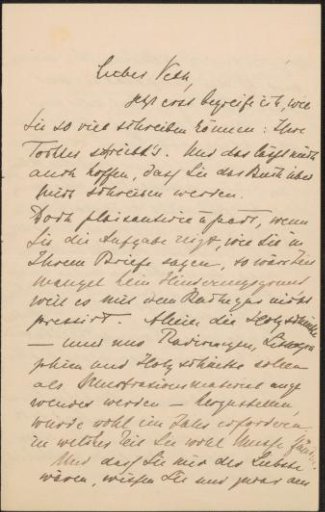 Lieber Veth,
Jetzt erst begreife ich, wie
Sie so viel schreiben können: Ihre
Tochter schreibt's. Und das läßt mich
auch hoffen, dass Sie das Buch über
mich schreiben werden.
Doch plaisanterie à part, wenn
Sie die Aufgabe reizt, wie Sie in
Ihrem Briefe sagen, so wäre Zeit
mangel kein Hinderungsgrund
weil es mit dem nicht
pressirt. Allein die Holzschnitte
— und nur Radirungen, Lithogra
phien und Holzschnitte sollen
als Illustrationsmaterial ange
wendet werden — herzustellen,
würde wohl ein Jahr erfordern,
in welcher Zeit Sie wohl Musse
Und dass Sie mir der Liebste
wären, wissen Sie und zwar aus